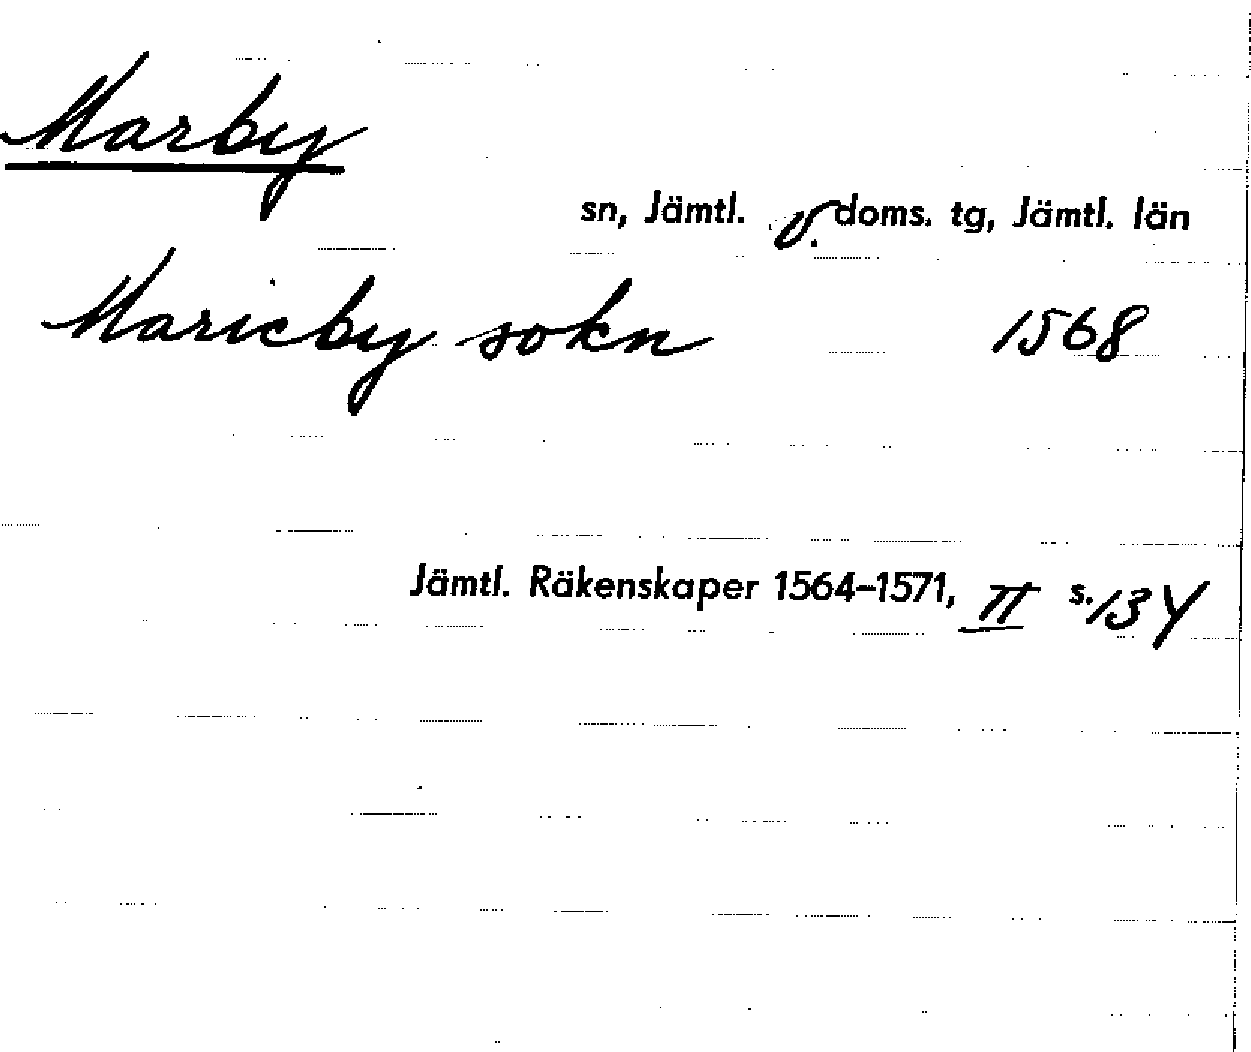 Marby
sn, Jämtl. v. doms. tg, Jämtl. län
Marieby sokn 1568
Jämtl. Räkenskaper 1564-1571, II s. 134